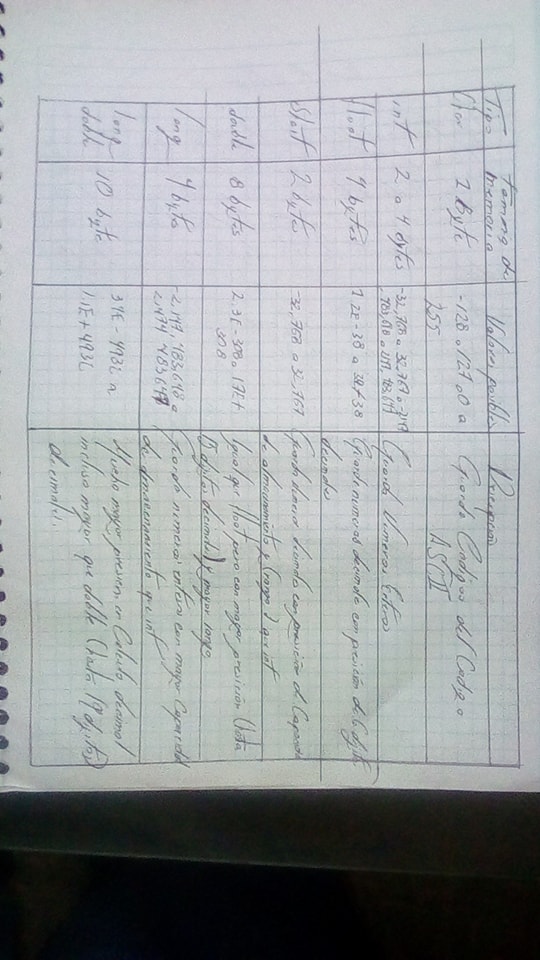 Tipo
Tamaño de
memoria
Valores posibles
Descripcion
Char
1 Byte
-128 a 127 o 0 a
255
Guarda Codigos del Codigo
ASCII
int
2 a 4 bytes
-32,768 a 32,767 o
Guarda Numeros Enteros
float
4 bytes
1.2E-38 a
Guarda numeros decimales con precision de 6 digitos
decimales
Short
2 bytes
-32,768 a 32,767
de almacenamiento (rango) que int
double
8 bytes
2.3E-308 a
308
Igual que float pero con mayor precision (hasta
15 digitos decimales) y mayor rango
long
4 bytes
-2,147,483,648 a
Guarda numeros enteros con mayor Capacidad
de almacenamiento que int
long
double
10 byte
3.4E-4932 a
1.1E+4932
Mucho mayor precision en Calculo decimal
incluso mayor que double (hasta 19 digitos)
decimales.